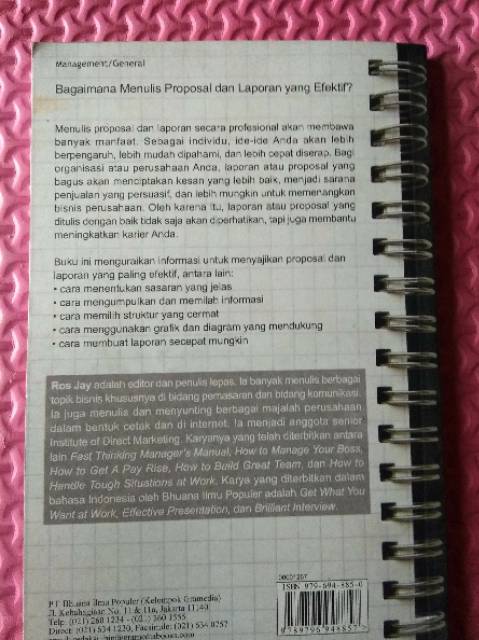 Management/General
Bagaimana Menulis Proposal dan Laporan yang Efektif?
Menulis proposal dan laporan secara profesional akan membawa
banyak manfaat. Sebagai individu, ide-ide Anda akan lebih
berpengaruh, lebih mudah dipahami, dan lebih cepat diserap. Bagi
organisasi atau perusahaan Anda, laporan atau proposal yang
bagus akan menciptakan kesan yang lebih baik, menjadi sarana
penjualan yang persuasif, dan lebih mungkin untuk memenangkan
bisnis perusahaan. Oleh karena itu, laporan atau proposal yang
ditulis dengan baik tidak saja akan diperhatikan, tapi juga membantu
meningkatkan karier Anda.
Buku ini menguraikan informasi untuk menyajikan proposal dan
laporan yang paling efektif, antara lain:
• cara menentukan sasaran yang jelas
• cara mengumpulkan dan memilah informasi
• cara memilih struktur yang cermat
• cara menggunakan grafik dan diagram yang mendukung
• cara membuat laporan secepat mungkin
Ros Jay adalah editor dan penulis lepas. Ia banyak menulis berbagai
topik bisnis khususnya di bidang pemasaran dan bidang komunikasi.
Ia juga menulis dan menyunting berbagai majalah perusahaan
dalam bentuk cetak dan di internet. Ia menjadi anggota senior
Institute of Direct Marketing. Karyanya yang telah diterbitkan antara
lain Fast Thinking Manager's Manual, How to Manage Your Boss,
How to Get A Pay Rise, How to Build Great Team, dan How to
Handle Tough Situations at Work. Karya yang diterbitkan dalam
bahasa Indonesia oleh Bhuana Ilmu Populer adalah Get What You
Want at Work, Effective Presentation, dan Brilliant Interview.
PT Bhuana Ilmu Populer (Kelompok Gramedia)
Jl. Kebahagiaan No. 11 & 11a, Jakarta 11140
Telp: (021) 260 1234 - (021) 260 1555
Direct: (021) 534 1230, Facsimile: (021) 534 0257
ISBN 979-694-885-0
9789796948857